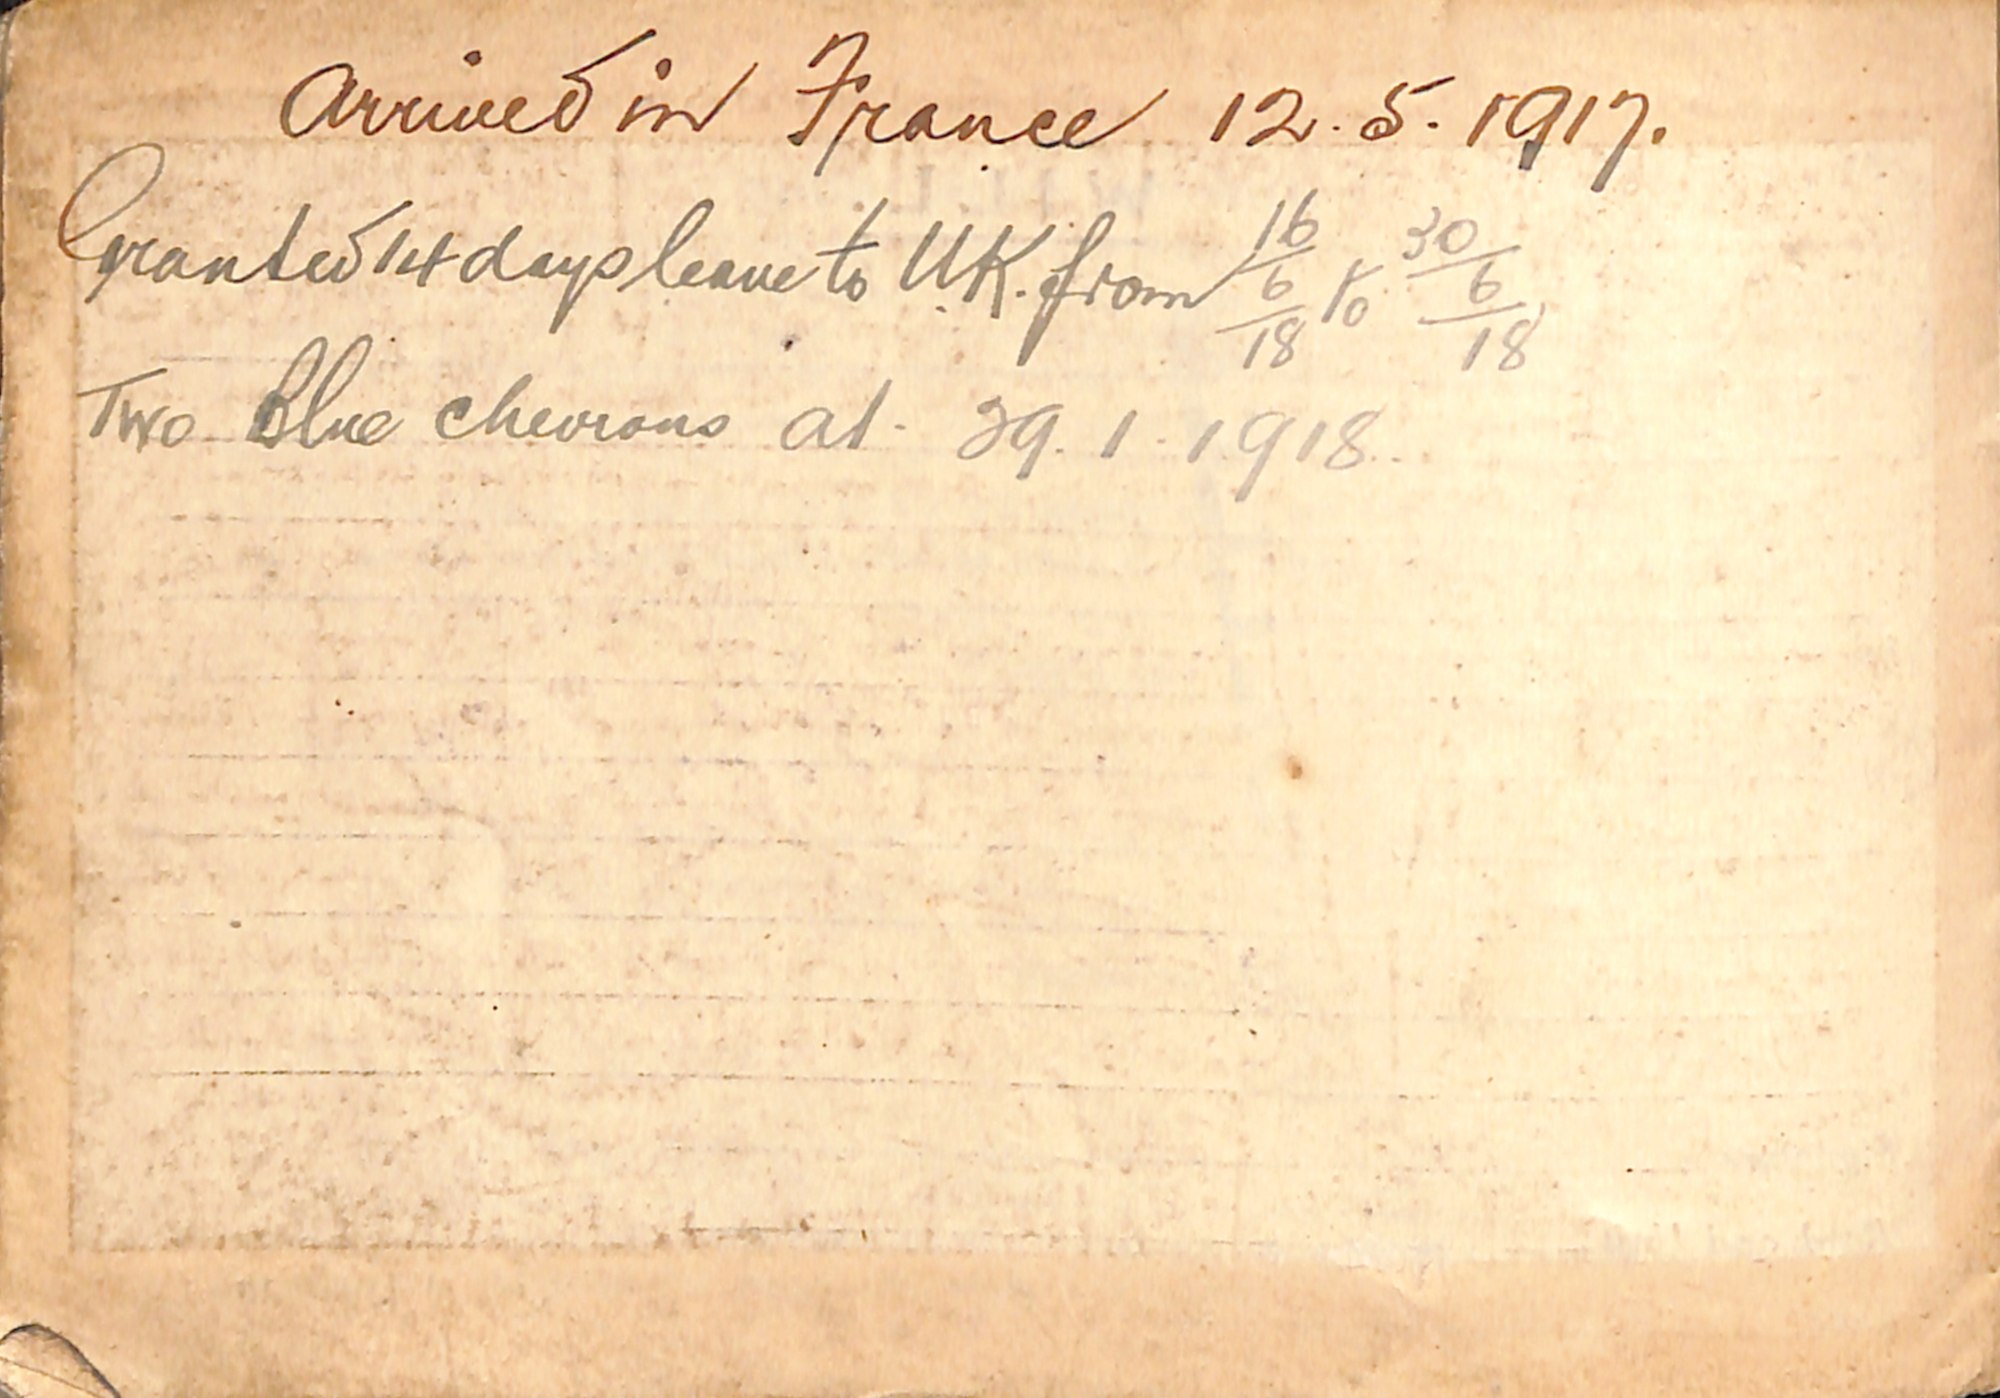 Arrived in France 12.5.1917.
Granted 14 days leave to U.K. from 16/6/18 to 30/6/18
Two Blue chevrons at 29.1.1918.